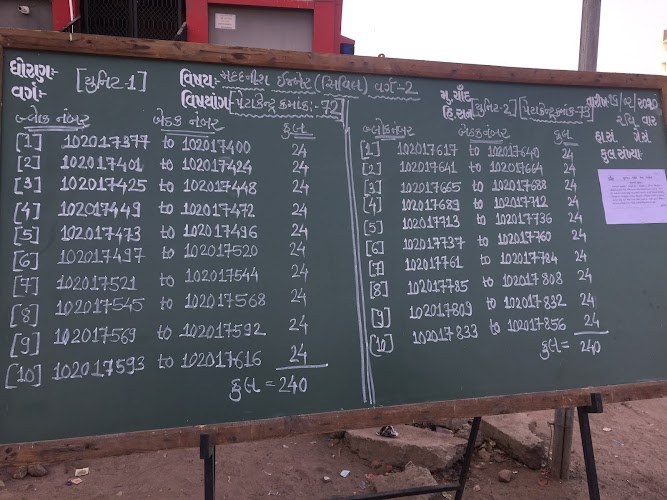 ધોરણ:-
[યુનિટ-1]
વિષય:- મદદનીશ ઈજનેર (સિવિલ) વર્ગ-2
વર્ગ:-
વિષયાંગ:- [પેટાકેન્દ્ર ક્રમાંક:- 72]
બ્લોક નંબર બેઠક નંબર કુલ
[1] 102017377 to 102017400 24
[2] 102017401 to 102017424 24
[3] 102017425 to 102017448 24
[4] 102017449 to 102017472 24
[5] 102017473 to 102017496 24
[6] 102017497 to 102017520 24
[7] 102017521 to 102017544 24
[8] 102017545 to 102017568 24
[9] 102017569 to 102017592 24
[10] 102017593 to 102017616 24
કુલ = 240
મુ. ચાંદ
હિ. સન
[યુનિટ-2] [પેટાકેન્દ્ર ક્રમાંક-73]
બ્લોક નંબર બેઠક નંબર કુલ
[1] 102017617 to 102017640 24
[2] 102017641 to 102017664 24
[3] 102017665 to 102017688 24
[4] 102017689 to 102017712 24
[5] 102017713 to 102017736 24
[6] 102017737 to 102017760 24
[7] 102017761 to 102017784 24
[8] 102017785 to 102017808 24
[9] 102017809 to 102017832 24
[10] 102017833 to 102017856 24
કુલ = 240
તારીખ
રવિ વાર
હાસં ગેસં
કુલ સંખ્યા: